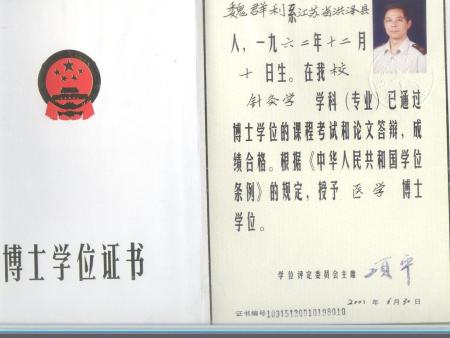 博士学位证书
魏群利系江苏省洪泽县
人，一九六二年十二月
十日生。在我校
针灸学 学科（专业）已通过
博士学位的课程考试和论文答辩，成
绩合格。根据《中华人民共和国学位
条例》的规定，授予 医学 博士
学位。
学位评定委员会主席 项平
2001 年 6 月 30 日
证书编号 10315120010198010